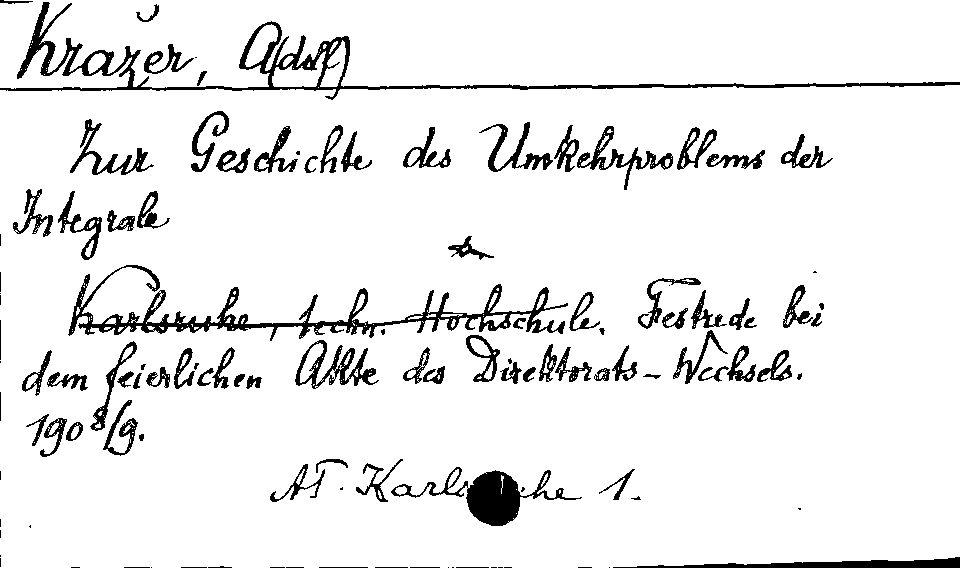 Krazer, A(dolf)
Zur Geschichte des Umkehrproblems der
Integrale
Karlsruhe, techn. Hochschule. Festrede bei
dem feierlichen Akte des Direktorats-Wechsels.
1908/9.
AT. Karlsruhe 1.